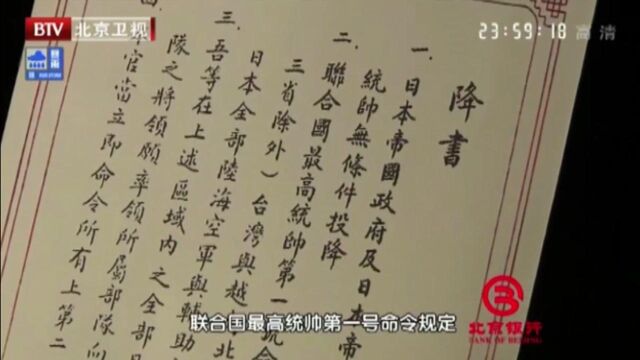 BTV 北京卫视
23:59:18 高清
降書
一、日本帝國政府及日本帝
統帥無條件投降
二、聯合國最高統帥第一
三省除外）台灣與越 北
日本全部陸海空軍與輔助
三、吾等在上述區域內之全部
隊之將領願率領所屬部隊
官當立即命令所有上第二
联合国最高统帅第一号命令规定
北京银行
BANK OF BEIJING